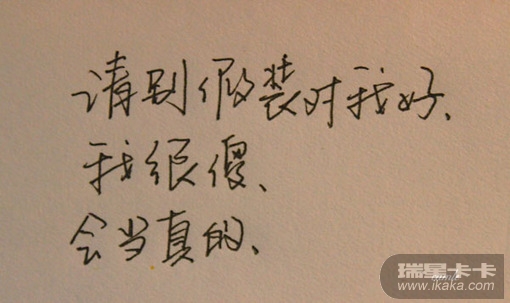 请别假装对我好、
我很傻、
会当真的、
瑞星卡卡
www.ikaka.com